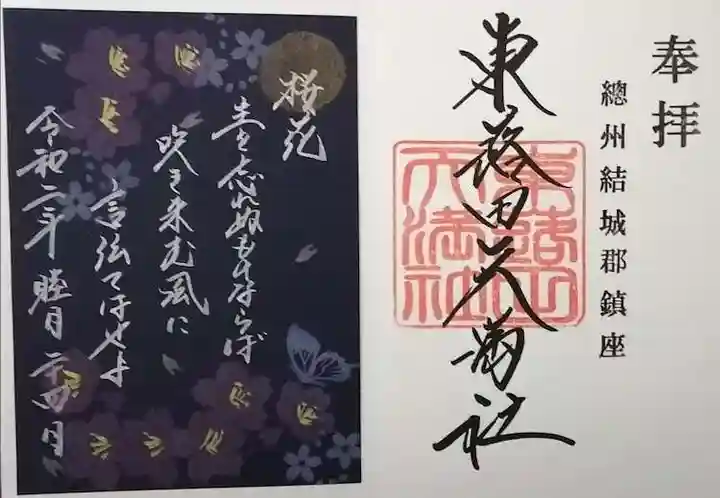 奉拝
總州結城郡鎮座
東蕗田天満社
東蕗田
天満社
桜花
主を忘れぬものならば
吹き来む風に
言伝てはせよ
令和二年 睦月 二十四日